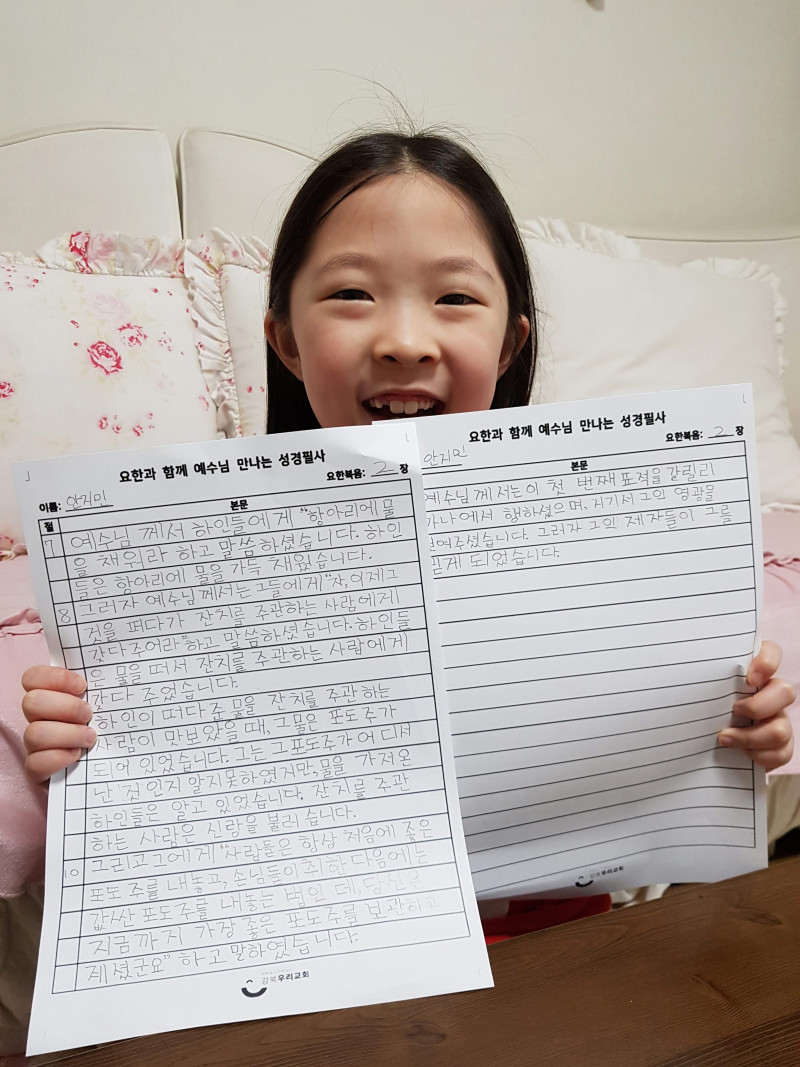 요한과 함께 예수님 만나는 성경필사
요한복음: 2 장
이름: 안지민
절 본문
7 예수님 께서 하인들에게 "항아리에 물
을 채워라 하고 말씀하셨습니다. 하인
들은 항아리에 물을 가득 채웠습니다.
8 그러자 예수님께서는 그들에게 "자, 이제 그
것을 퍼다가 잔치를 주관하는 사람에게
갖다 주어라" 하고 말씀하셨습니다. 하인들
은 물을 떠서 잔치를 주관하는 사람에게
갖다 주었습니다.
하인이 떠다 준 물을 잔치를 주관 하는
사람이 맛보았을 때, 그 물은 포도주가
되어 있었습니다. 그는 그 포도주가 어 디서
난 것 인지 알지 못하였지만, 물을 가져온
하인들은 알고 있었습니다. 잔치를 주관
하는 사람은 신랑을 불러 습니다.
10 그리고 그에게 "사람들은 항상 처음에 좋은
포도 주를 내놓고, 손님들이 취 한 다음에는
값싼 포도주를 내놓는 법인 데, 당신은
지금까 지 가장 좋은 포도주를 보관하고
계 셨군요" 하고 말하였습 니다.
강북우리교회
요한과 함께 예수님 만나는 성경필사
요한복음: 2 장
안지민
본문
예수님 께 서는 이 첫 번째 표적을 갈릴리
가나 에서 행하셨으며, 거기서 그의 영광을
보여주셨습니다. 그러자 그의 제자들이 그를
믿게 되었습니다.
강북우리교회